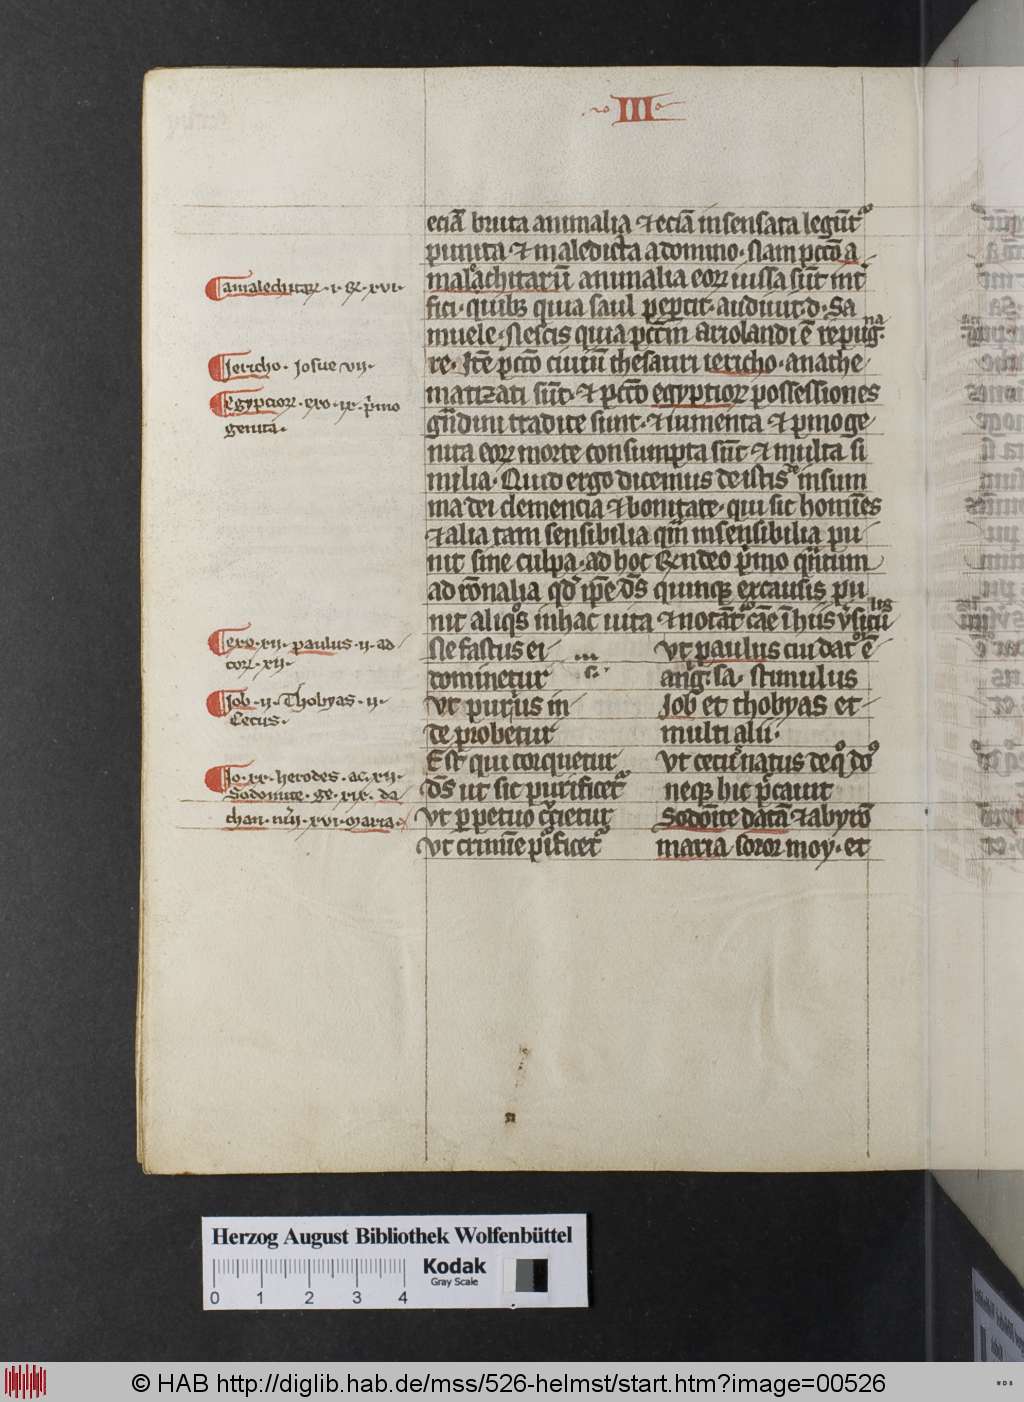 III
eciā bruta animalia ⁊ eciā insensata legūtʳ
punita ⁊ maledicta a domino. Nam pctō a
malachitarū animalia eorꝝ iussa sūt intʳ
fici. quibꝫ quia saul peꝑcit. audiuit. d. Sa
muele. Nescis quia pctm̄ ariolandi ē repugna
re. Itē pctō ciuiū thesauri iericho. anathe
matizati sūt. ⁊ pctō egyptiorꝝ possessiones
gn̄dini tradite sunt. ⁊ iumenta ⁊ pͥmoge
nita eorꝝ morte consumpta sūt ⁊ multa si
milia. Quid ergo dicemus de istis de insum
ma dei clemencia ⁊ bonitate. qui sic homīes
⁊ alia tam sensibilia qm̄ insensibilia pu
nit sine culpa. ad hoc Rn̄deo pͥmo qn̄tum
ad rōnalia qd̓ ip̄e dn̄s quinqꝫ ex causis pu
nit aliqͦs in hac uita ⁊ notātʳ cāe ī hiis ꝟsiculis
Ne fastus ei ... Vt paulus cui datꝰ ē
dominetur s. ang. sa. stimulus
Vt purius in Job et thobyas et
de probetur multi alii.
Est qui torquetur Vt cecꝰ natus de qͦ dō
dn̄s ut sit purificetʳ neqꝫ hic pͨcauit
Vt ꝑpetuo crͨietur Sodōite datā ⁊ abyrō
Vt crimīe pͥficetʳ maria soror moy. et
amalechitarꝝ. i. Rͤ. xvi.
Jericho. Josue vii.
Egyptiorꝝ. exo. ix. pͥmo
genita.
exo. xii. paulus. ii. ad
corꝝ. xii.
Job. ii. Thobyas. ii.
Cecus.
Jo. ix. herodes. ac. xii.
Sodomite. ge. xix. da
than. nūi. xvi. Maria.
Herzog August Bibliothek Wolfenbüttel
Kodak
Gray Scale
0 1 2 3 4
© HAB http://diglib.hab.de/mss/526-helmst/start.htm?image=00526